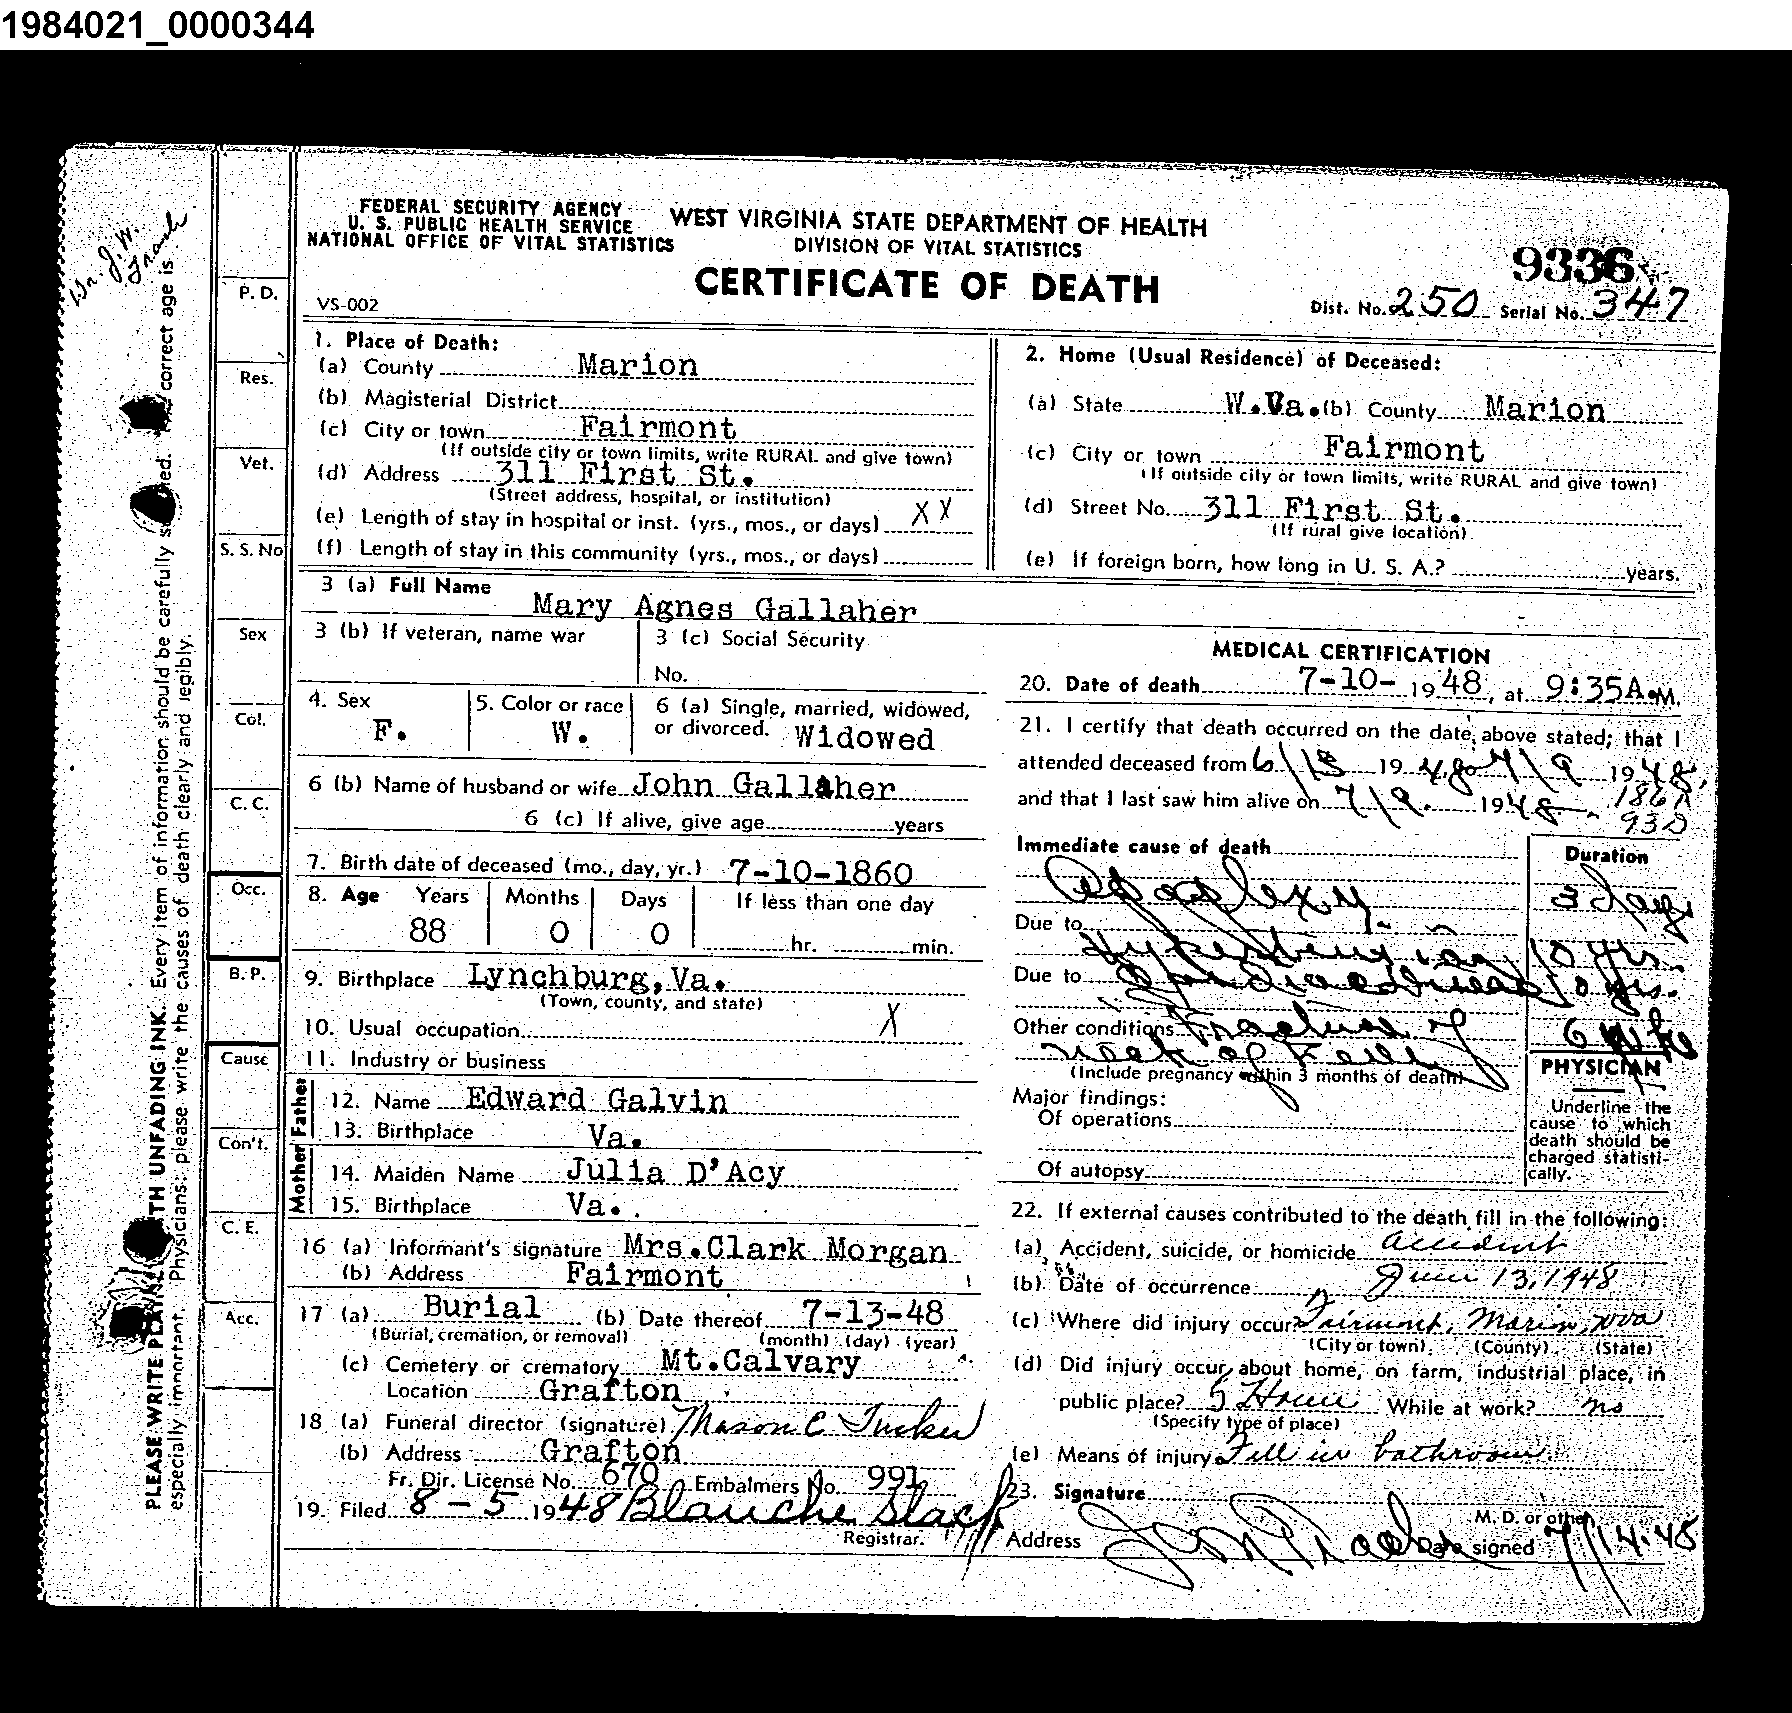 1984021_0000344
FEDERAL SECURITY AGENCY
U. S. PUBLIC HEALTH SERVICE
NATIONAL OFFICE OF VITAL STATISTICS
WEST VIRGINIA STATE DEPARTMENT OF HEALTH
DIVISION OF VITAL STATISTICS
CERTIFICATE OF DEATH
9336
VS-002
Dist. No. 250 Serial No. 347
Dr. J. W.
PLEASE WRITE PLAINLY WITH UNFADING INK. Every item of information should be carefully supplied. The correct age is
especially important. Physicians: please write the causes of death clearly and legibly.
P. D.
Res.
Vet.
S. S. No
Sex
Col.
C. C.
Occ.
B. P.
Cause
Con't.
C. E.
Acc.
1. Place of Death:
(a) County Marion
(b) Magisterial District
(c) City or town Fairmont
(If outside city or town limits, write RURAL and give town)
(d) Address 311 First St.
(Street address, hospital, or institution)
(e) Length of stay in hospital or inst. (yrs., mos., or days) X X
(f) Length of stay in this community (yrs., mos., or days)
2. Home (Usual Residence) of Deceased:
(a) State W.Va. (b) County Marion
(c) City or town Fairmont
(If outside city or town limits, write RURAL and give town)
(d) Street No. 311 First St.
(If rural give location)
(e) If foreign born, how long in U. S. A.? years.
3 (a) Full Name Mary Agnes Gallaher
3 (b) If veteran, name war
3 (c) Social Security
No.
4. Sex F.
5. Color or race W.
6 (a) Single, married, widowed,
or divorced. Widowed
6 (b) Name of husband or wife John Gallaher
6 (c) If alive, give age years
7. Birth date of deceased (mo., day, yr.) 7-10-1860
8. Age Years Months Days If less than one day
88 0 0 hr. min.
9. Birthplace Lynchburg, Va.
(Town, county, and state)
10. Usual occupation X
11. Industry or business
Father
12. Name Edward Galvin
13. Birthplace Va.
Mother
14. Maiden Name Julia D'Acy
15. Birthplace Va.
16 (a) Informant's signature Mrs. Clark Morgan
(b) Address Fairmont
17 (a) Burial (b) Date thereof 7-13-48
(Burial, cremation, or removal) (month) (day) (year)
(c) Cemetery or crematory Mt. Calvary
Location Grafton
18 (a) Funeral director (signature) Mason C Tucker
(b) Address Grafton
Fr. Dir. License No. 670 Embalmers No. 991
19. Filed 8-5 1948 Blanche Slack
Registrar.
MEDICAL CERTIFICATION
20. Date of death 7-10- 1948, at 9:35A.M.
21. I certify that death occurred on the date above stated; that I
attended deceased from 6/13 1948 to 7/9 1948,
and that I last saw him alive on 7/9 1948
186A
93D
Immediate cause of death Duration
Apoplexy 3 days
Due to Hypertension 10 yrs.
Due to Cardiac disease 10 yrs.
Other conditions Fracture of 6 wks
neck of
(Include pregnancy within 3 months of death)
PHYSICIAN
Major findings:
Of operations
Of autopsy
Underline the
cause to which
death should be
charged statisti-
cally.
22. If external causes contributed to the death fill in the following:
(a) Accident, suicide, or homicide accident
(b) Date of occurrence June 13, 1948
(c) Where did injury occur? Fairmont, Marion, WVa
(City or town) (County) (State)
(d) Did injury occur about home, on farm, industrial place, in
public place? Home While at work? no
(Specify type of place)
(e) Means of injury Fell in bathroom.
23. Signature
M. D. or other
Address Date signed 7/14-48